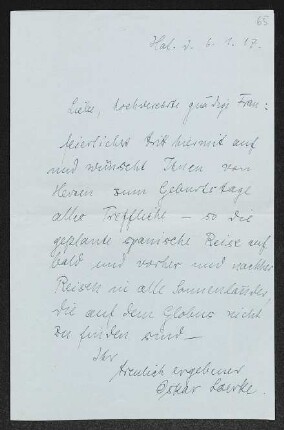 65
6. 1. 17.
Liebe, hochverehrte gnädige Frau:
feierlichst tritt hiermit auf
und wünscht Ihnen von
Herzen zum Geburtstage
alles Treffliche – so die
geplante spanische Reise auf
bald und vorher und nachher
Reisen in alle Sonnenländer,
die auf dem Globus nicht
zu finden sind –
Ihr
treulich ergebener
Oskar Loerke.